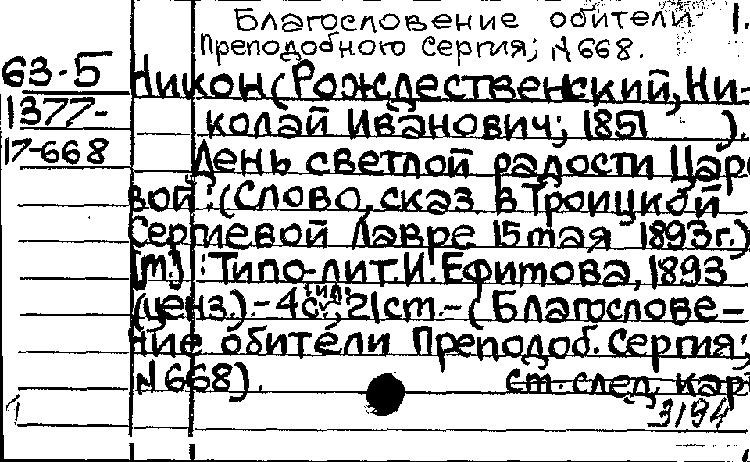 Благословение обители 1.
Преподобного Сергия; N 668.
63-5 Никон (Рождественский, Ни-
1377- колай Иванович; 1851 ).
17-668 День светлой радости Царс
вой : (Слово, сказ. в Троицкой
Сергиевой Лавре 15 мая 1893г.)
[м.] : Типо-лит. И. Ефимова, 1893
(ценз.). - 4 с., 21 см. - (Благослове-
ние обители Преподоб. Сергия;
N 668). ст. след. карт
3194